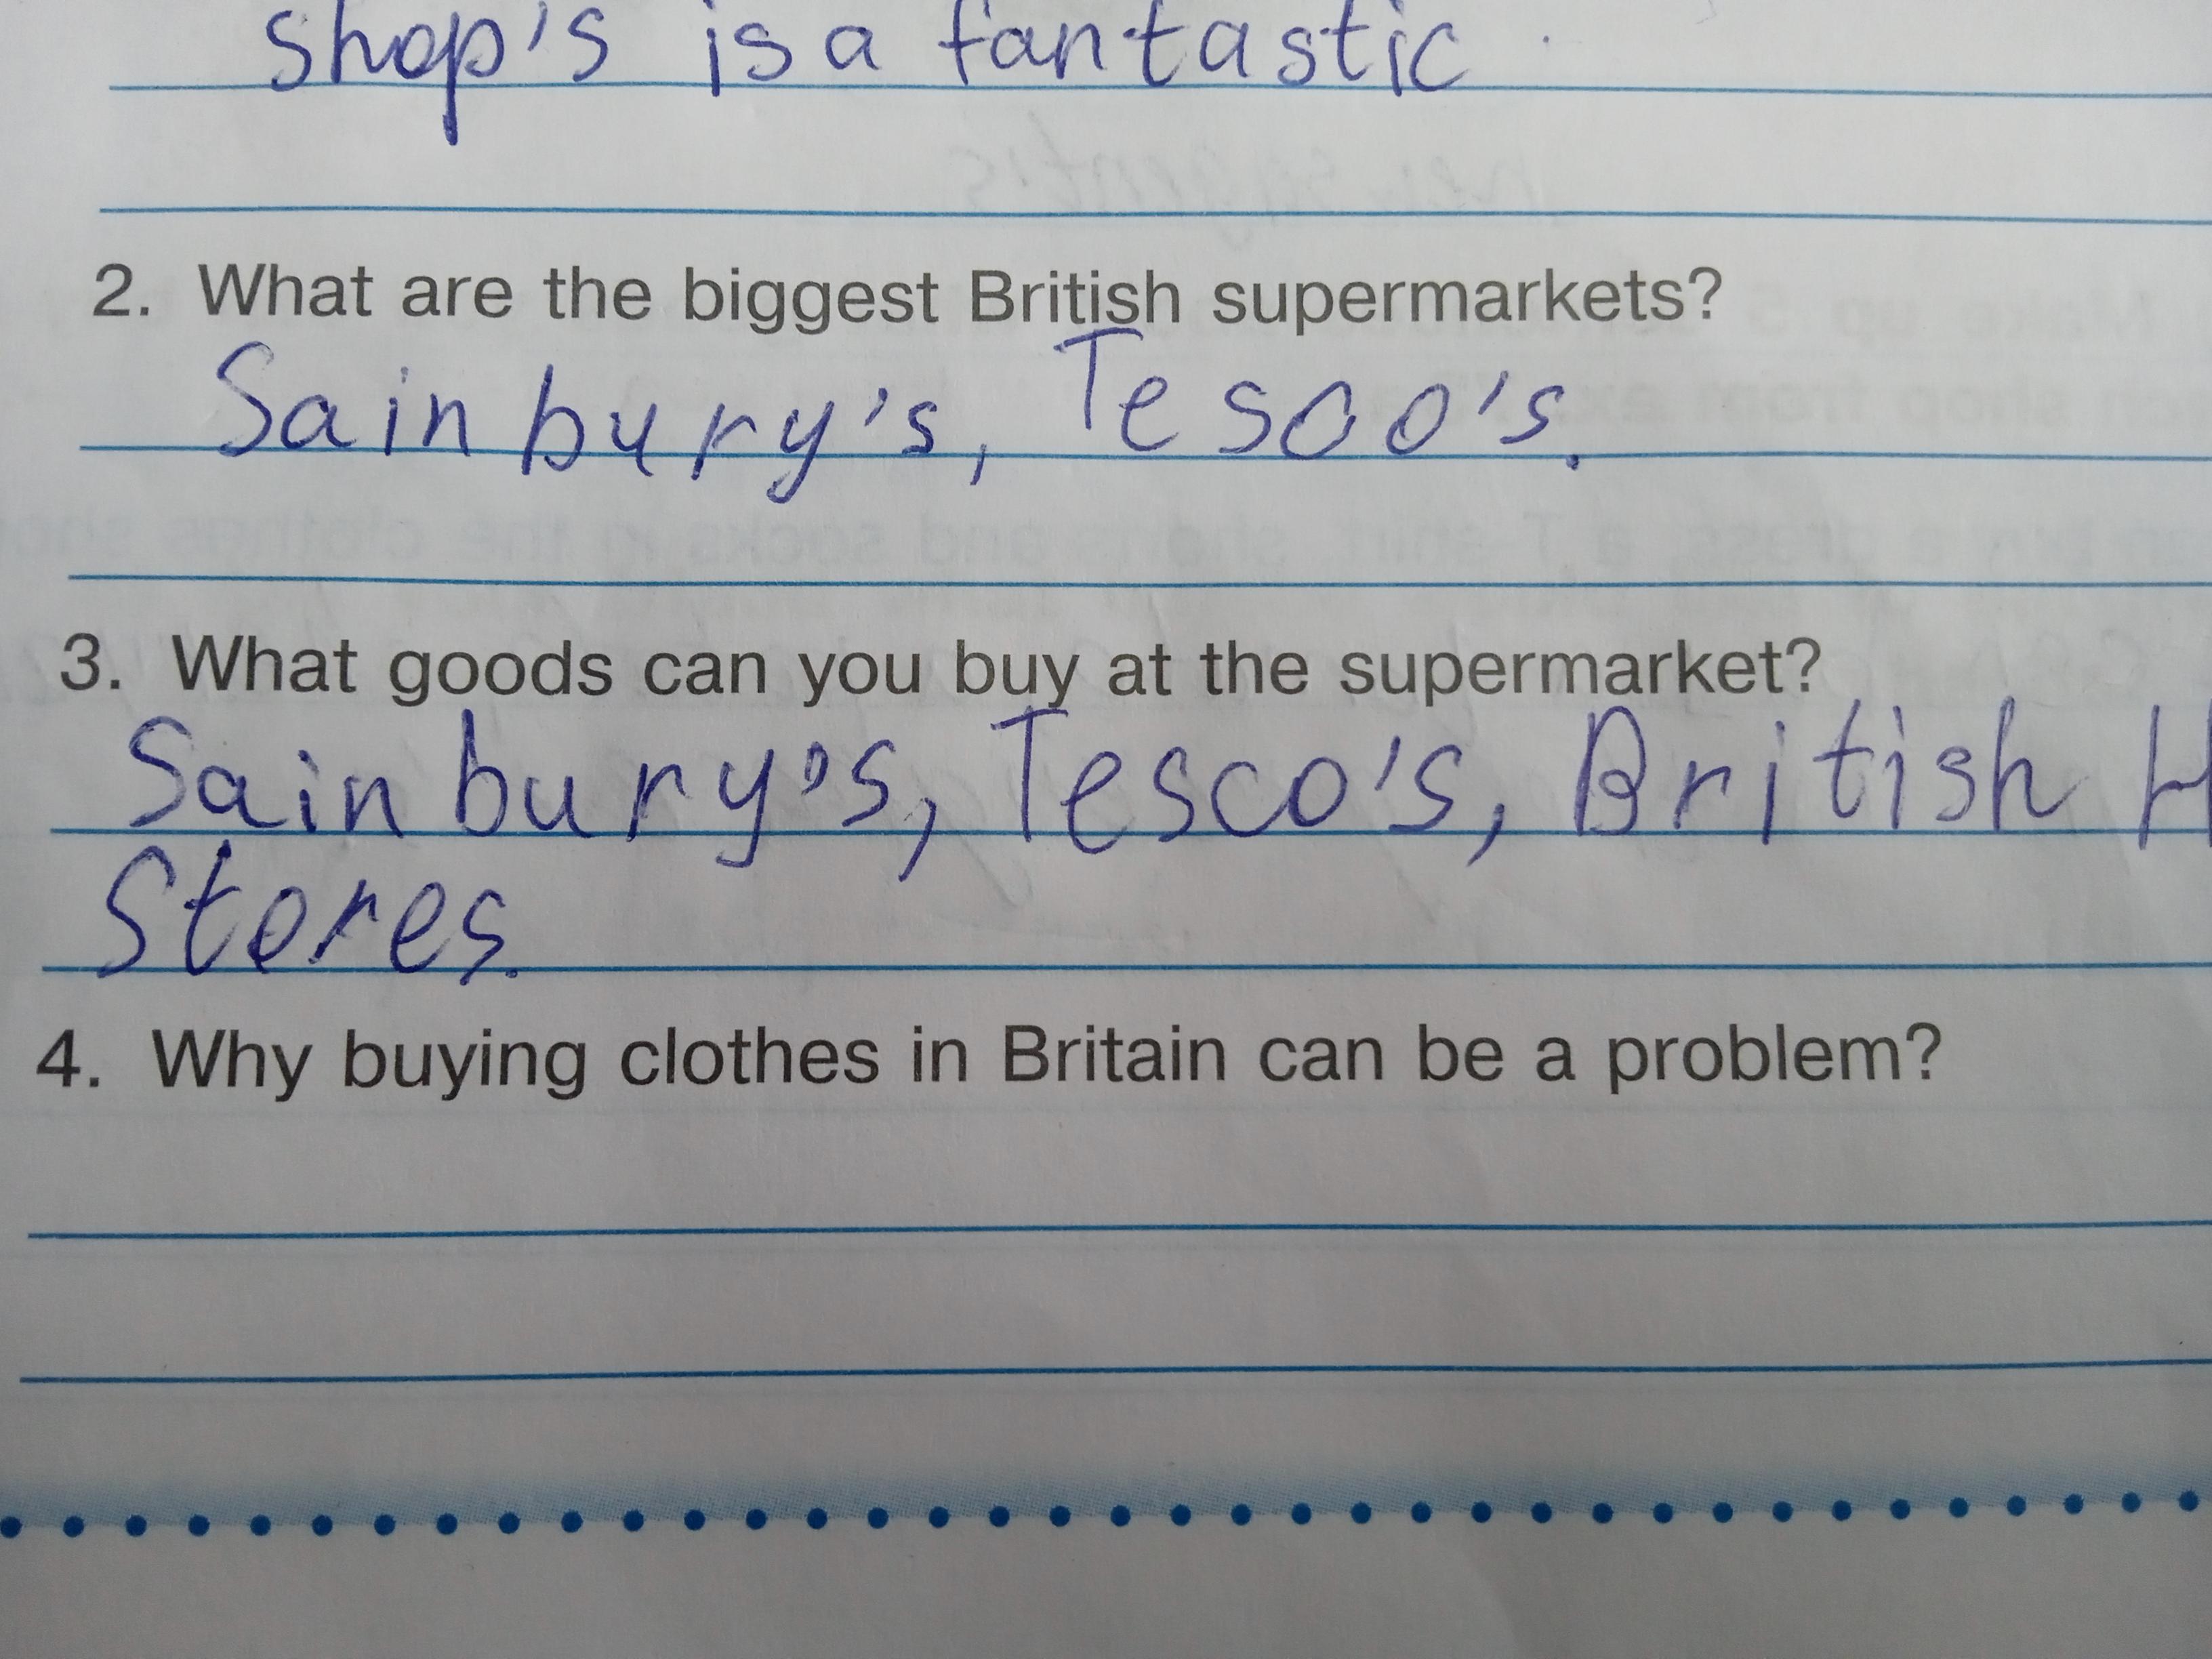 shop's is a fantastic.
2. What are the biggest British supermarkets?
Sainbury's, Tesoo's.
3. What goods can you buy at the supermarket?
Sainbury's, Tesco's, British H
Stores.
4. Why buying clothes in Britain can be a problem?